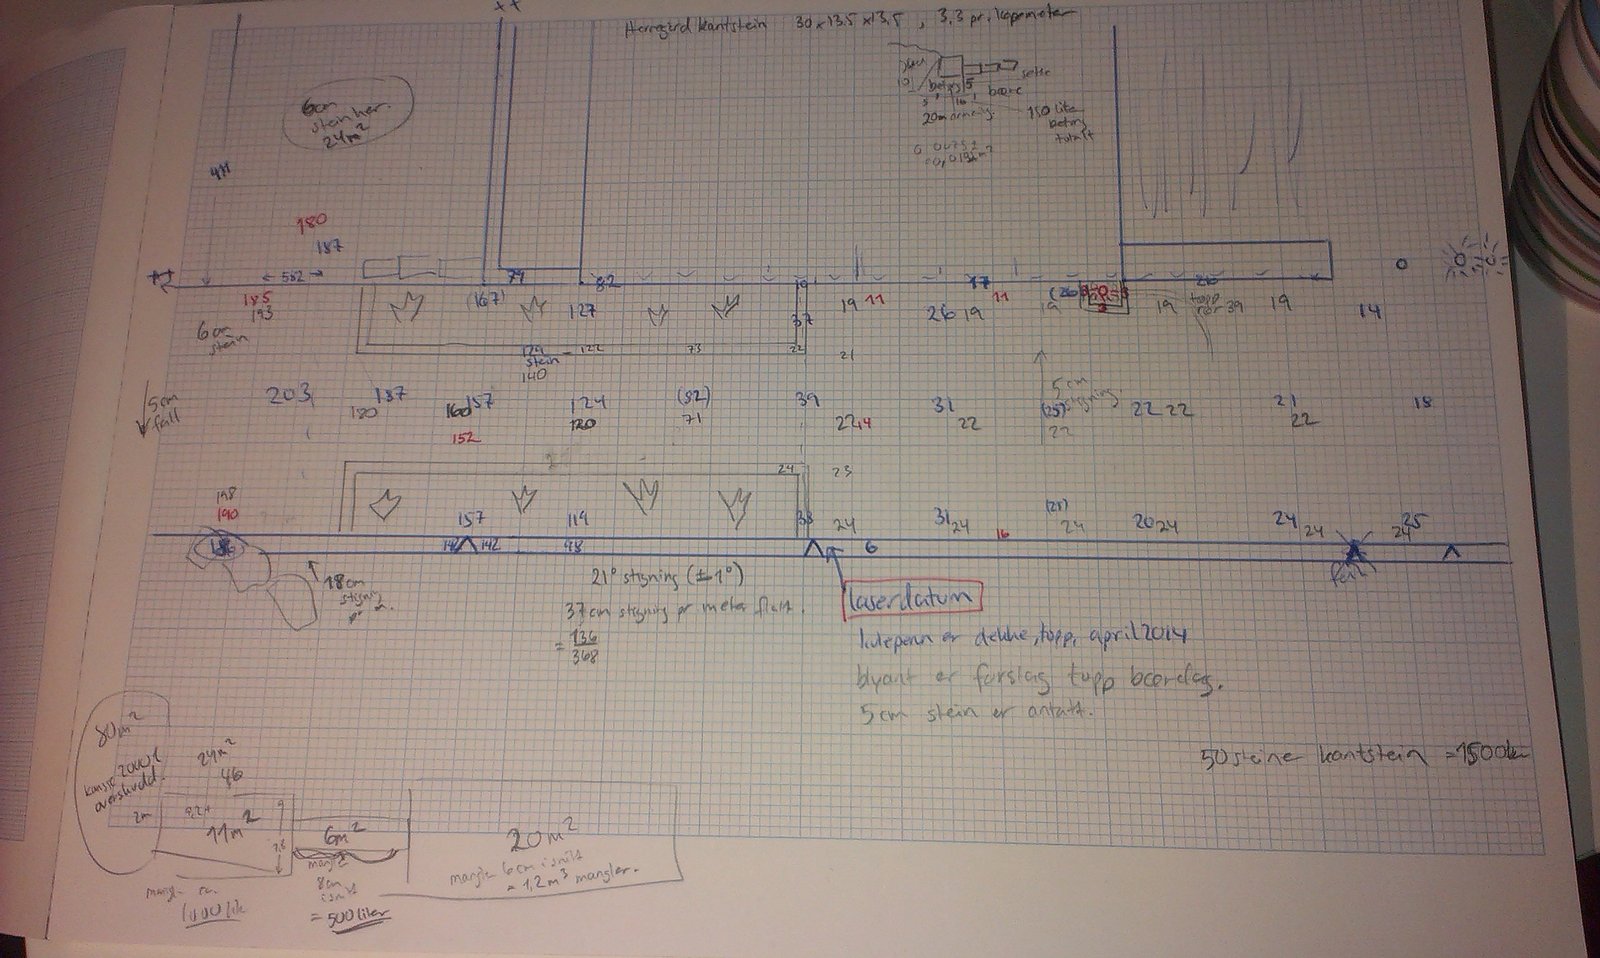 Herregård kantstein 30 x 13.5 x 13.5 , 3,3 pr. løpemeter
6cm
stein her.
24m²
5
20m
150 liter
betong
totalt
411
180
187
582
185
193
6cm
stein
79
82
19
17
26
(167)
127
37
19 11
26 19
11
19
19
topp
39
19
14
124
stein
140
122
73
22
21
5cm
stigning
5cm
fall
203
187
180
157
160
152
124
120
(82)
71
39
22 14
31
22
(25)
22
22 22
21
22
18
24
23
198
190
157
119
38
24
31 24
16
(25)
24
20 24
24
24
25
24
186
142 142
98
6
feil
18cm
stigning
pr
21° stigning (±1°)
37cm stigning pr meter flatt.
= 136
368
laserdatum
kulepenn er dekke, topp, april 2014
blyant er forslag topp bærelag.
5cm stein er antatt.
50 steiner kantstein = 1500kr
80m²
kanskje 2000 l
overskudd.
24m²
46
2m
11m²
6m²
20m²
mangler
8cm
i snitt
= 500 liter
mangler 6cm i snitt
= 1,2m³ mangler.
1000 liter